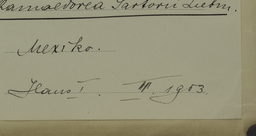 Chamaedorea Sartorii Liebm.
Mexiko.
Hans I. III 1903.